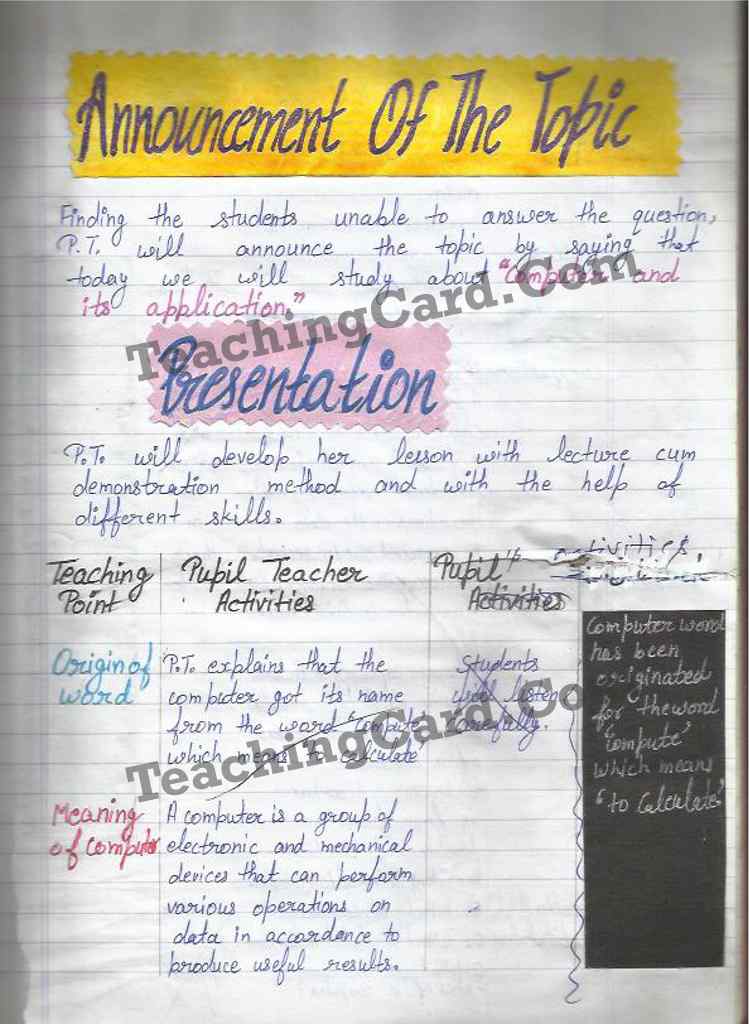 Announcement Of The Topic
Finding the students unable to answer the question,
P.T. will announce the topic by saying that
today we will study about "Computer and
its application."
TeachingCard.Com
Presentation
P.T. will develop her lesson with lecture cum
demonstration method and with the help of
different skills.
Teaching Point
Pupil Teacher Activities
Pupil's Activities
activities.
Origin of
word
P.T. explains that the
computer got its name
from the word "compute"
which means to calculate
Students
will listen
carefully.
TeachingCard.Co
Meaning
of computer
A computer is a group of
electronic and mechanical
devices that can perform
various operations on
data in accordance to
produce useful results.
Computer word
has been
originated
for the word
'compute'
which means
"to calculate"